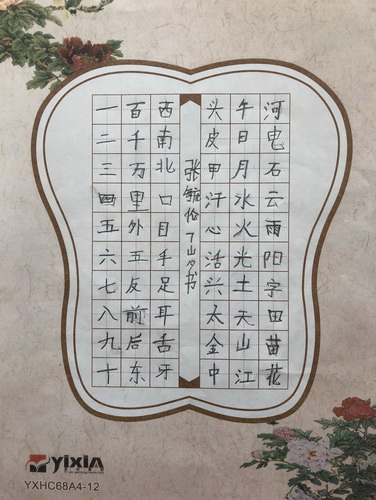 一二三四五六七八九十
百千万里外五反前后东
西南北口目手足耳舌牙
张 书
头皮甲汗心活兴太金中
午日月水火光土天山江
河电石云雨阳字田苗花
yixin
YXHC68A4-12